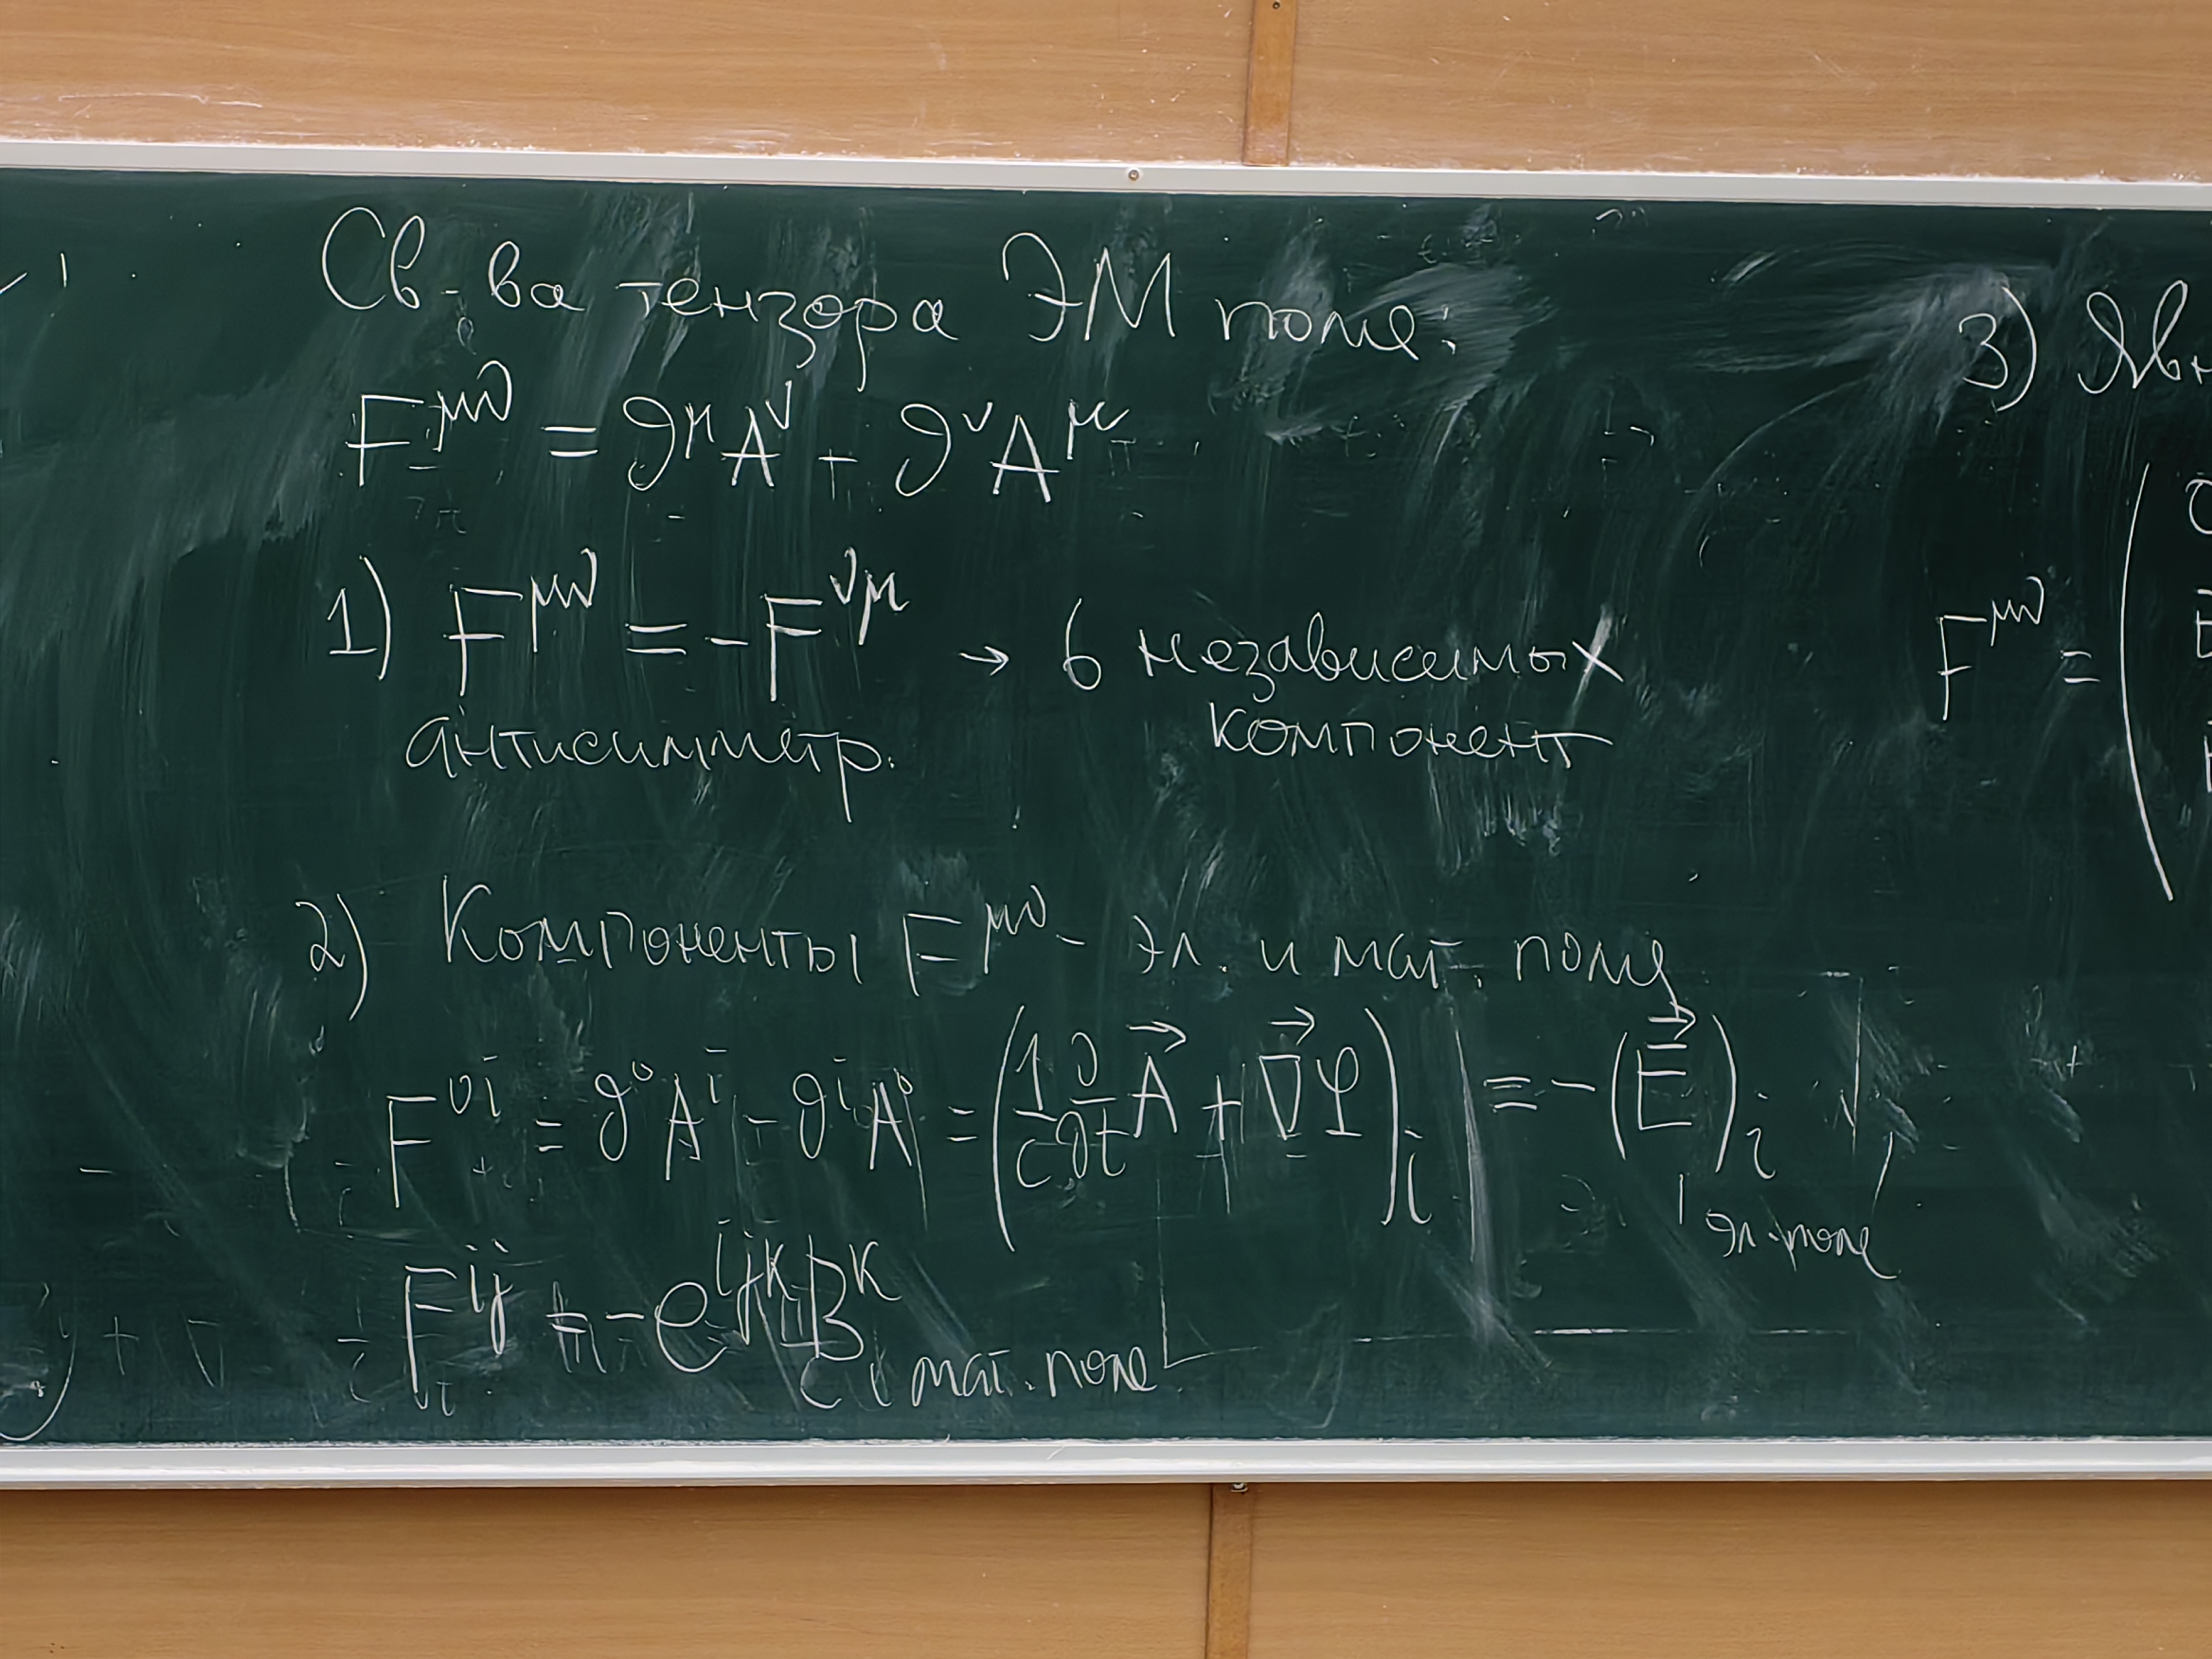 Св-ва тензора ЭМ поля:
F^{μν} = ∂^μ A^ν + ∂^ν A^μ
1) F^{μν} = -F^{νμ} → 6 независимых
антисимметр. компонент
2) Компоненты F^{μν} - эл. и маг. поля
F^{0i} = ∂^0 A^i - ∂^i A^0 = (1/c ∂/∂t \vec{A} + \vec{∇}φ)_i ≡ -(\vec{E})_i
эл. поле
F^{ij} = -e^{ijk} B^k
маг. поле
3) Явн
F^{μν} = (